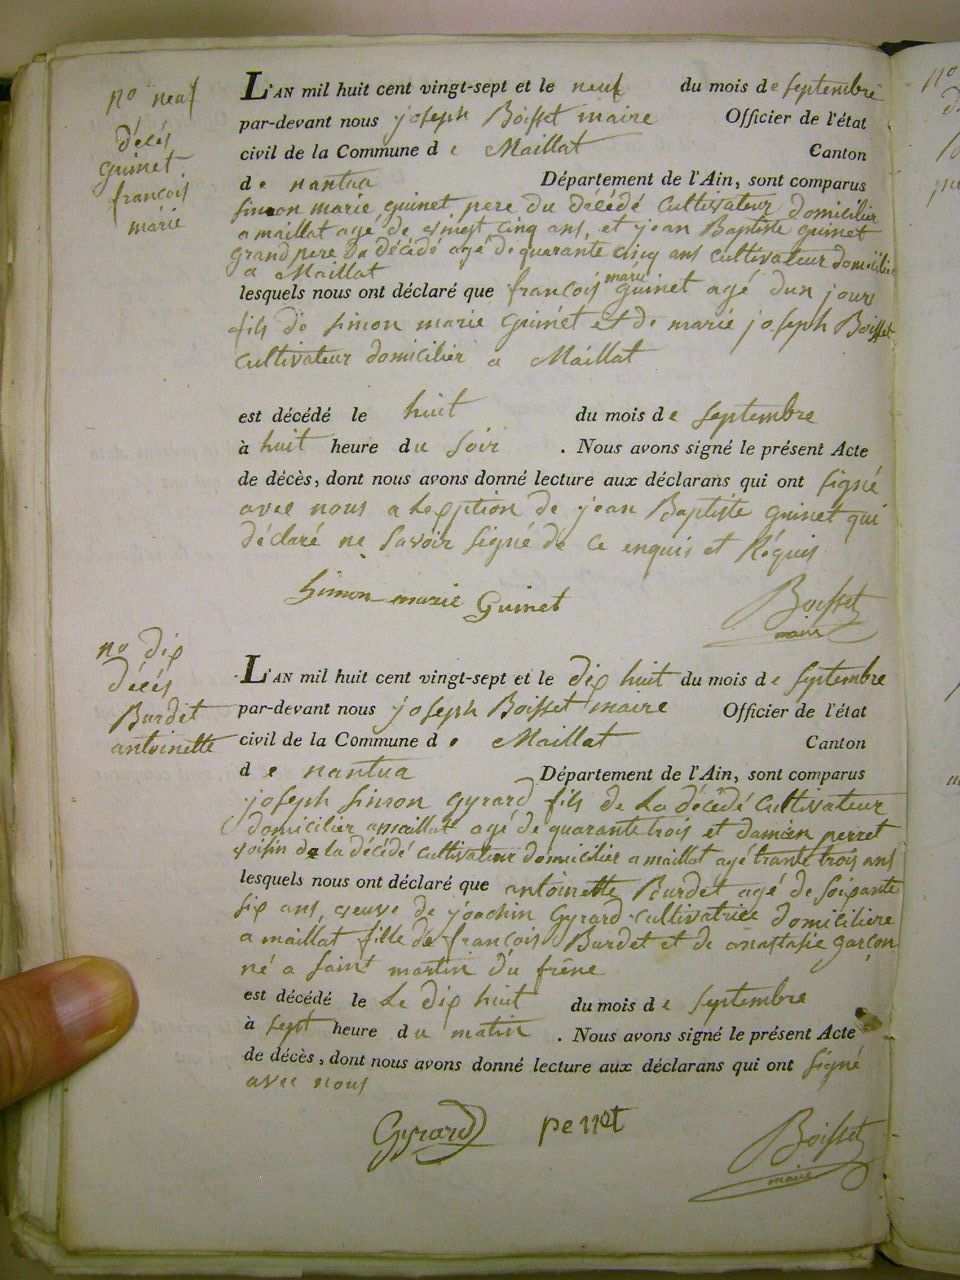 no neuf
décés
guinet
françois
marie
L'AN mil huit cent vingt-sept et le neuf du mois de septembre
par-devant nous joseph Boisset maire Officier de l'état
civil de la Commune de Maillat Canton
de nantua Département de l'Ain, sont comparus
simon marie guinet pere du decédé cultivateur domicilier
a maillat agé de vingt cinq ans, et jean Baptiste guinet
grand pere du décédé agé de quarante cinq ans cultivateur domicilié
a Maillat
lesquels nous ont déclaré que françois marie guinet agé dun jours
fils de simon marie guinet et de marie joseph Boisset
cultivateur domicilier a Maillat
est décédé le huit du mois de septembre
à huit heure du soir . Nous avons signé le présent Acte
de décès, dont nous avons donné lecture aux déclarans qui ont signé
avec nous a de jean Baptiste guinet qui
déclaré ne savoir signé de ce enquis et Réquis
Simon marie Guinet Boisset
maire
no dix
décés
Burdet
antoinette
L'AN mil huit cent vingt-sept et le dix huit du mois de septembre
par-devant nous joseph Boisset maire Officier de l'état
civil de la Commune de Maillat Canton
de nantua Département de l'Ain, sont comparus
joseph simon Gyrard fils de La décédé cultivateur
domicilier a maillat agé de quarante trois et damien perret
voisin de la décédé cultivateur domicilier a maillat agé trante trois ans
lesquels nous ont déclaré que antoinette Burdet agé de soixante
six ans, veuve de joachin Gyrard cultivatrice domiciliere
a maillat fille de françois Burdet et de anastasie garçon
né a saint martin du frêne
est décédé le Le dix huit du mois de septembre
à sept heure du matin . Nous avons signé le présent Acte
de décès, dont nous avons donné lecture aux déclarans qui ont signé
avec nous
Gyrard perret Boisset
maire